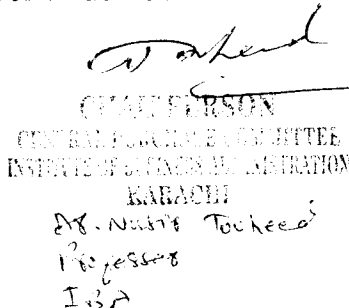 CHAIRPERSON
CENTRAL PURCHASE COMMITTEE
INSTITUTE OF BUSINESS ADMINISTRATION
KARACHI
Dr. Nasir Touheed
Professor
IBA